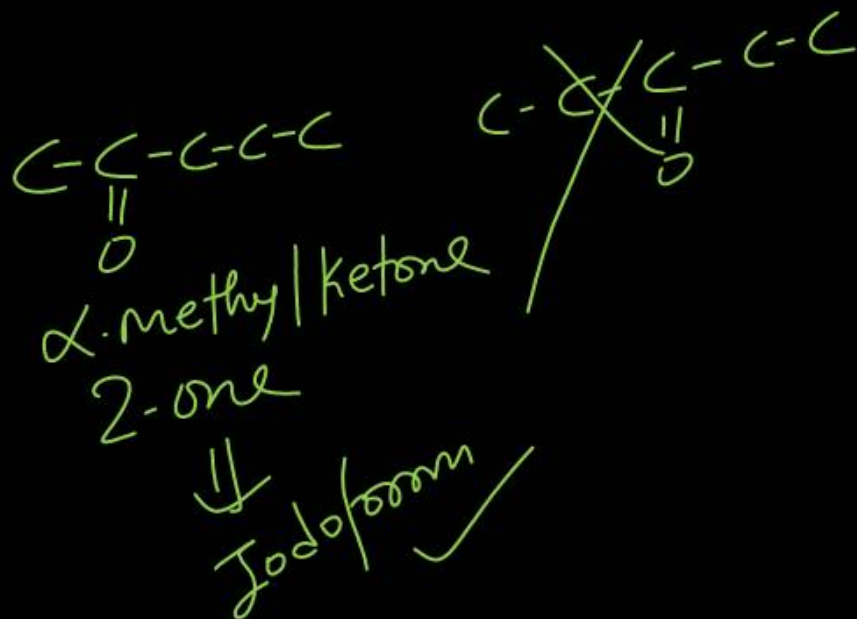 C-C-C-C-C
||
O
C-C-C-C-C
||
O
α.methyl ketone
2-one
⇓
Iodoform ✓